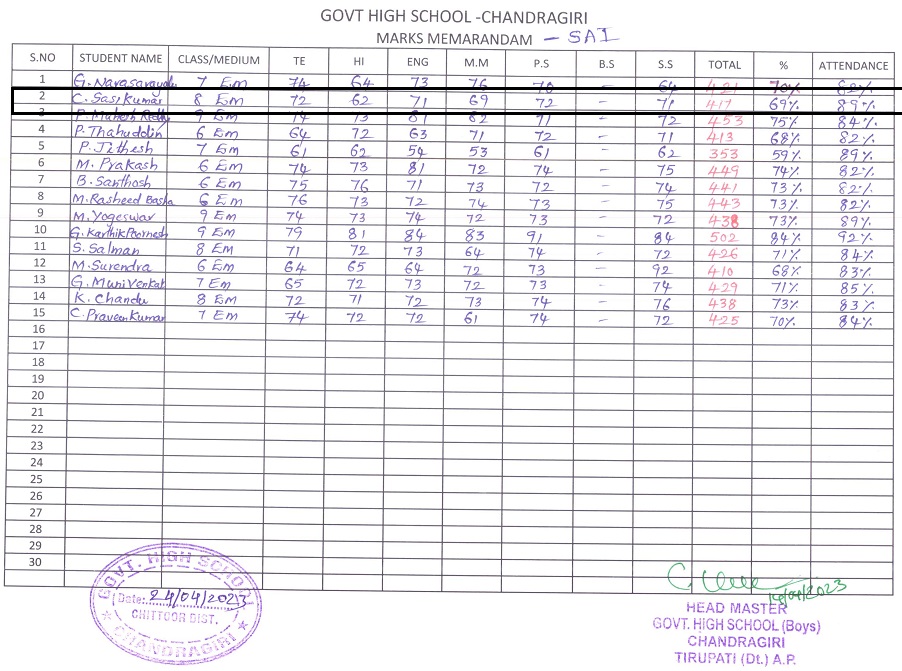 GOVT HIGH SCHOOL -CHANDRAGIRI
MARKS MEMARANDAM - SAI
S.NO STUDENT NAME CLASS/MEDIUM TE HI ENG M.M P.S B.S S.S TOTAL % ATTENDANCE
1 G. Narasarayudu 7 Em 74 64 73 76 70 - 64 421 70% 82%
2 C. Sasi Kumar 8 Em 72 62 71 69 72 - 71 417 69% 89%
3 P. Mahesh Reddy 9 Em 74 73 81 82 71 - 72 453 75% 84%
4 P. Thahuddin 6 Em 64 72 63 71 72 - 71 413 68% 82%
5 P. Jithesh 7 Em 61 62 54 53 61 - 62 353 59% 89%
6 M. Prakash 6 Em 74 73 81 72 74 - 75 449 74% 82%
7 B. Santhosh 6 Em 75 76 71 73 72 - 74 441 73% 82%
8 M. Rasheed Basha 6 Em 76 73 72 74 73 - 75 443 73% 82%
9 M. Yogeswar 9 Em 74 73 74 72 73 - 72 438 73% 89%
10 G. Karthik Poornesh 9 Em 79 81 84 83 91 - 84 502 84% 92%
11 S. Salman 8 Em 71 72 73 64 74 - 72 426 71% 84%
12 M. Surendra 6 Em 64 65 64 72 73 - 92 410 68% 83%
13 G. Muni Venkat 7 Em 65 72 73 72 73 - 74 429 71% 85%
14 K. Chandu 8 Em 72 71 72 73 74 - 76 438 73% 83%
15 C. Praveen Kumar 7 Em 74 72 72 61 74 - 72 425 70% 84%
16
17
18
19
20
21
22
23
24
25
26
27
28
29
30
GOVT. HIGH SCHOOL
Date: 24/04/2023
CHITTOOR DIST.
CHANDRAGIRI
14/04/2023
HEAD MASTER
GOVT. HIGH SCHOOL (Boys)
CHANDRAGIRI
TIRUPATI (Dt.) A.P.